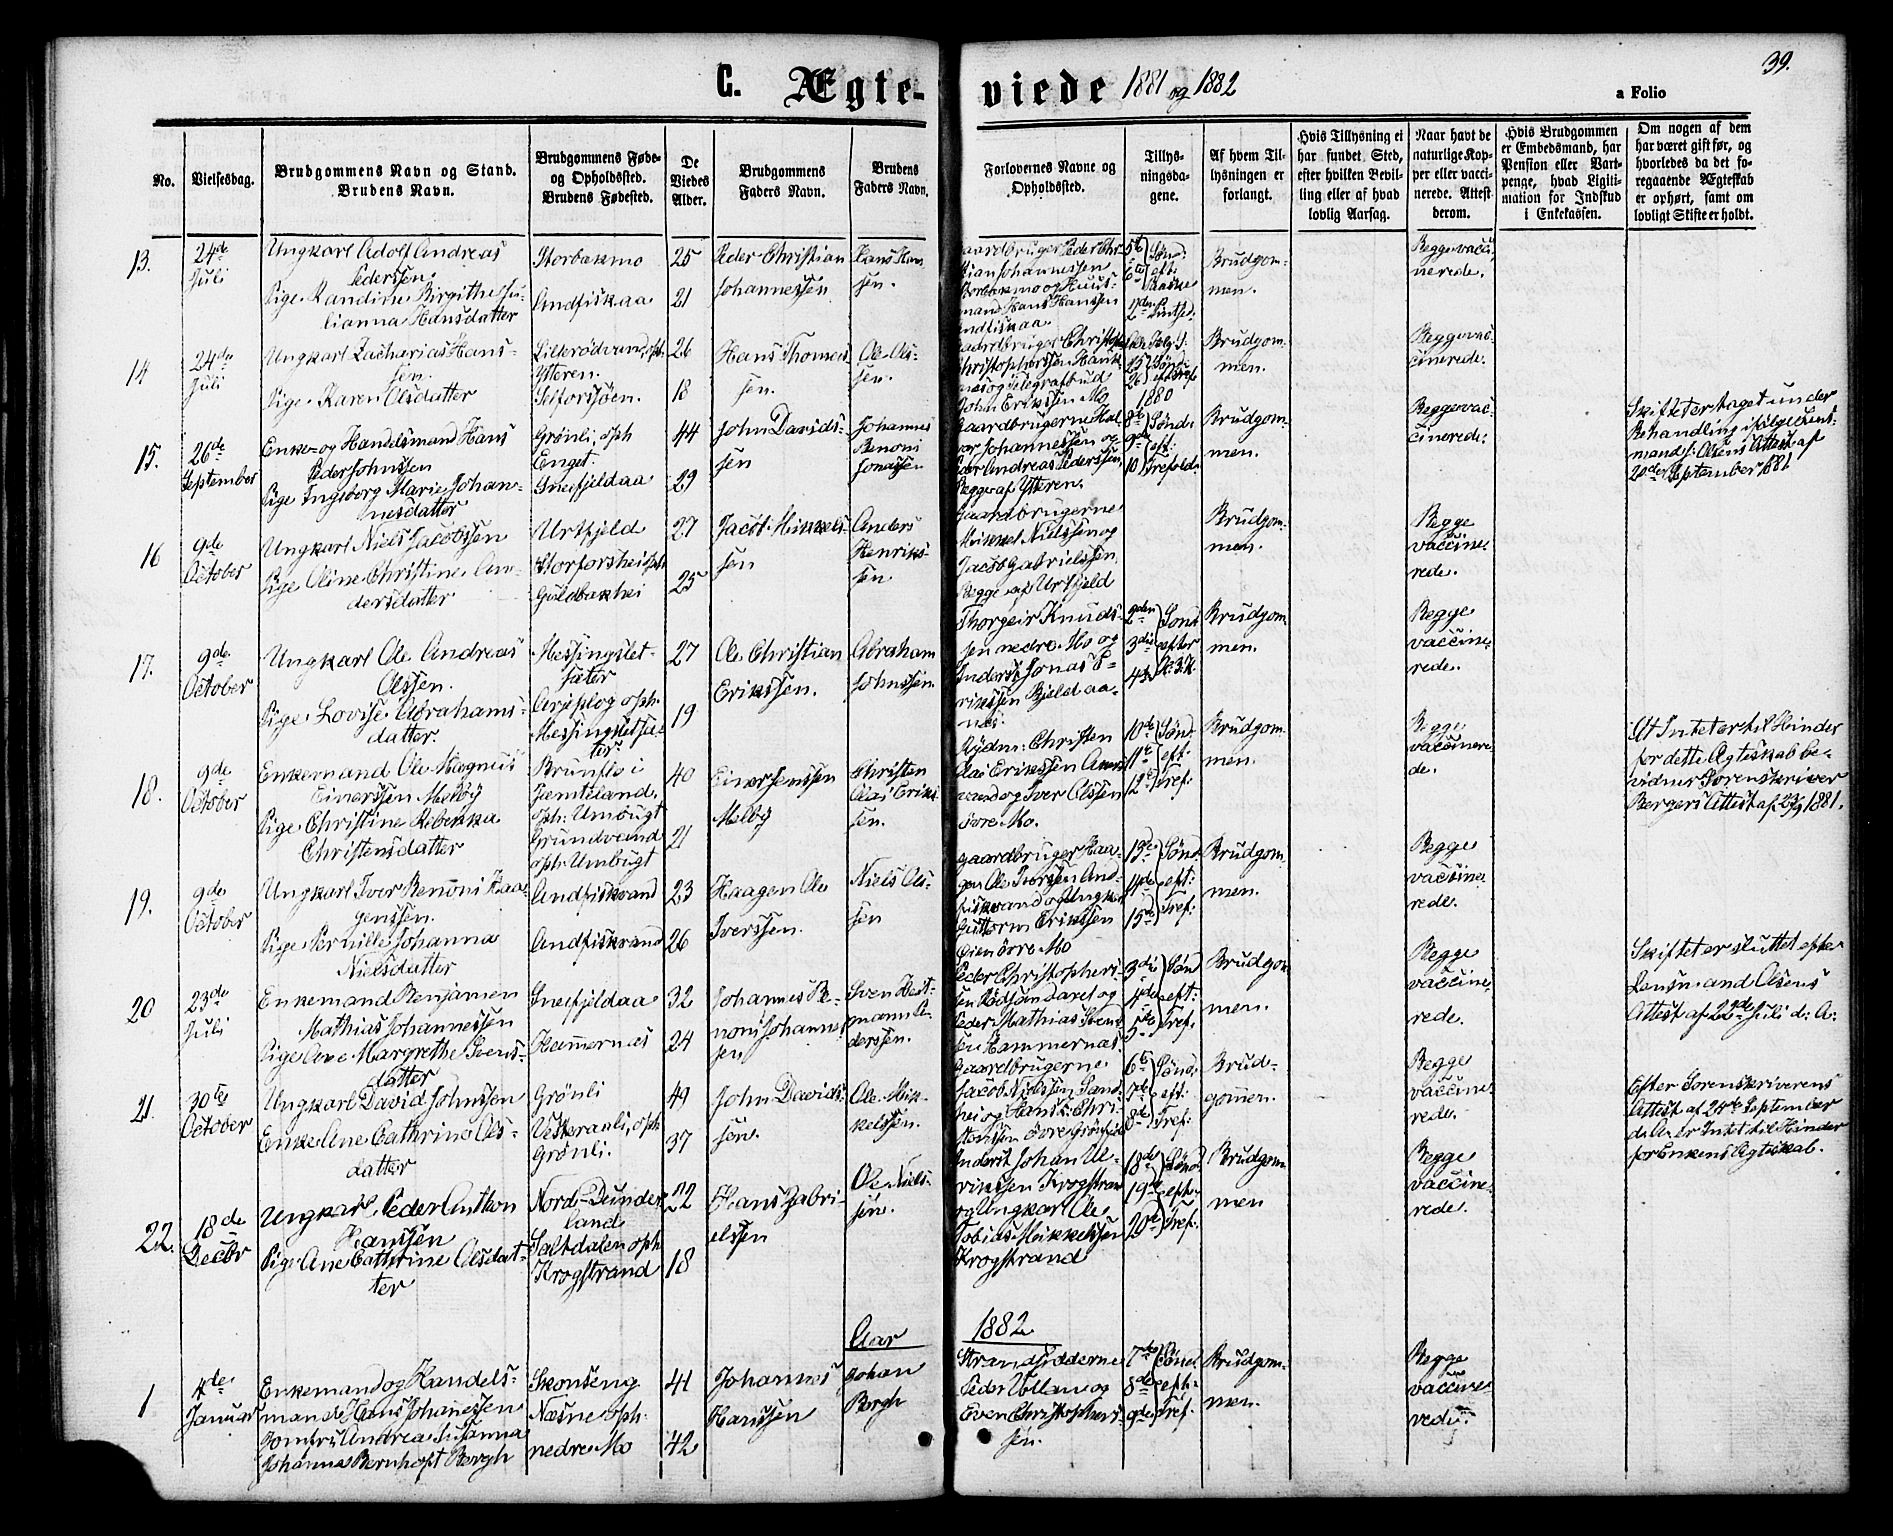 39.
C. Ægte- viede 1881 og 1882
a Folio
No.
Vielsesdag.
Brudgommens Navn og Stand.
Brudens Navn.
Brudgommens Føde-
og Opholdssted.
Brudens Fødested.
De
Viedes
Alder.
Brudgommens
Faders Navn.
Brudens
Faders Navn.
Forlovernes Navne og
Opholdssted.
Tillys-
ningsda-
gene.
Af hvem Til-
lysningen er
forlangt.
Hvis Tillysning ei
har fundet Sted,
efter hvilken Bevil-
ling eller af hvad
lovlig Aarsag.
Naar havt de
naturlige Kop-
per eller vacci-
nerede. Attest
derom.
Hvis Brudgommen
er Embedsmand, har
Pension eller Vart-
penge, hvad Ligiti-
mation for Indskud
i Enkekassen.
Om nogen af dem
har været gift før, og
hvorledes da det fo-
regaaende Ægteskab
er ophørt, samt om
lovligt Skifte er holdt.
13.
24de
Juli
Ungkarl Adolf Andreas
Pederssen.
Pige Randine Birgithe Ju-
lianna Hansdatter
Storbakmo
Andfiskaa
25
21
Peder Christian
Johannessen
Hans Han-
sen.
Gaardbruger Peder Chr-
stian Johannessen
Storbakmo og Huus-
mand Hans Hanssen
Andfiskaa
Brudgom-
men.
Begge vacci-
nerede.
14
24de
Juli
Ungkarl Zacharias Hans-
sen.
Pige Karen Olsdatter
Lillerödvand, oph.
Ytteren.
Selforssjøen.
26
18
Hans Thomes-
sen.
Ole Ols-
sen.
Gaardbruger Christopher
Christopherssen Hauk-
næs og Telegrafbud
John Erikssen Mo
1880
Brudgom-
men.
Begge vac-
cinerede.
15.
26de
September
Enke- og Handelsmand Hans
Peder Johnssen
Pige Ingeborg Marie Johan-
nesdatter
Grønli, oph
Enget.
Sneefjeldaa
44
29
John Davids-
sen
Johannes
Benoni
Jonassen
Gaardbrugerne Hal-
vor Johannessen og
Peder Andreas Pederssen,
Begge af Ytteren.
8de Sønd:
9de eft:
10 Trefold:
Brudgom-
men.
Begge vac-
cinerede.
Skiftet er taget under
Behandling ifølge Lens-
mand: Olsens Attest af
20de September 1881
16
9de
October
Ungkarl Niels Jacobssen
Pige Oline Christine An-
dersdatter
Urtfjeld
Storforshei oph
Guldbakhei
27
25
Jacob Mikkels-
sen
Anders
Henriks-
sen
Gaardbrugerne
Mikkel Nielssen og
Jacob Gabrielssen
Begge af Urtfjeld
Brudgom-
men.
Begge
vaccine-
rede.
17.
9de
October
Ungkarl Ole Andreas
Olssen.
Pige Lovise Abrahams-
datter.
Messingslet-
sæter
Arjeplog oph.
Messingsletsæ-
ter.
27
19
Ole Christian
Erikssen.
Abraham
Johnssen.
Thorgeir Knuds-
sen nedre Mo og
Inderst Jonas E-
rikssen Bjeldaa-
næs.
Brudgom
men.
Begge
vaccine-
rede.
18.
9de
October
Enkemand Ole Magnus
Einerssen Melby
Pige Christine Rebekka
Christensdatter
Brunflo i
Jæmteland,
oph: Umbugt
Grundvand
oph: Umbugt
40
21
Einer Jenssen
Melby
Christen
Olai Eriks-
sen.
Rydm: Christen
Olai Erikssen
vand og Iver Olssen
övre Mo.
10de Sønd.
11te eft:
12te Tref:
Brudgom-
men.
Begge
vaccinere-
de.
At Intet er til Hinder
for dette Ægteskab be-
vidner Sorenskriver
Bergers Attest af 23/9 1881.
19.
9de
October
Ungkarl Iver Benoni Haa-
genssen.
Pige Pernille Johanna
Nielsdatter
Andfiskvand
Andfiskvand
23
26
Haagen Ole
Iverssen.
Niels Ols-
sen
Gaardbruger Haa-
gen Ole Iverssen And-
fiskvand og Ungkar
Guttorm Erikssen
övre Mo
13de Sønd.
14de eft:
15de Tref:
Brudgom-
men.
Begge
vaccine-
rede.
20
23de
Juli
Enkemand Benjamin
Mathias Johannessen
Pige Ane Margrethe Svens-
datter
Sneefjeldaa
Hammernæs
32
24
Johannes Be-
noni Johannes
sen
Sven Hest-
mann Pe-
derssen.
Peder Christophers-
sen Rödsandaret og
Peder Mathias Svens-
sen Hammernæs.
3die Sønd
4de eft:
5te Tref.
Brudgom
men.
Begge
vaccine-
rede.
Skiftet er sluttet efter
Lensmand Olsens
Attest af 22de Juli d: A:
21.
30te
October
Ungkarl David Johnssen
Enke Ane Cathrine Ols-
datter
Grönli
Vesteraali, oph
Grönli.
49
37
John Davids-
sen.
Ole Mik-
kelssen.
Gaardbrugerne
Jacob Nielssen Sand-
hei og Hans Chri-
stenssen övre Grønfjeld
6te Sønd:
7de eft:
8de Tref:
Brud-
gommen.
Begge
vaccine-
rede.
Efter Sorenskriverens
Attest af 24de September
d: A: er Intet til Hinder
for Enkens Ægteskab.
22.
18de
Decbr
Ungkarl Peder Anthon
Hanssen
Pige Ane Cathrine Olsdat-
ter
Nord-Dunder-
land
Saltdalen oph
Krogstrand
22
18
Hans Gabri-
elssen
Ole Niels-
sen.
Inderst Johan Ul-
rikssen Krogstran
og Ungkarl Ole
Tobias Mikkelssen
Krogstrand
18de Sønd
19de eph.
20de Tref:
Brudgom-
men
Begge
vaccine-
rede.
Aar 1882
1
4de
Januar
Enkemand og Handels-
mand Hans Johanessen
Jomfru Andrea Susanna
Johanna Bernhoft Borgh
Skonseng
Næsne oph.
nedre Mo
41
42
Johannes
Hanssen
Johan
Borgh
Strandsidderne
Peder Vollan og
Even Christophers-
sen.
7de Sønd
8de eph.
9de Tref.
Brudgom-
men.
Begge
vaccine-
rede.